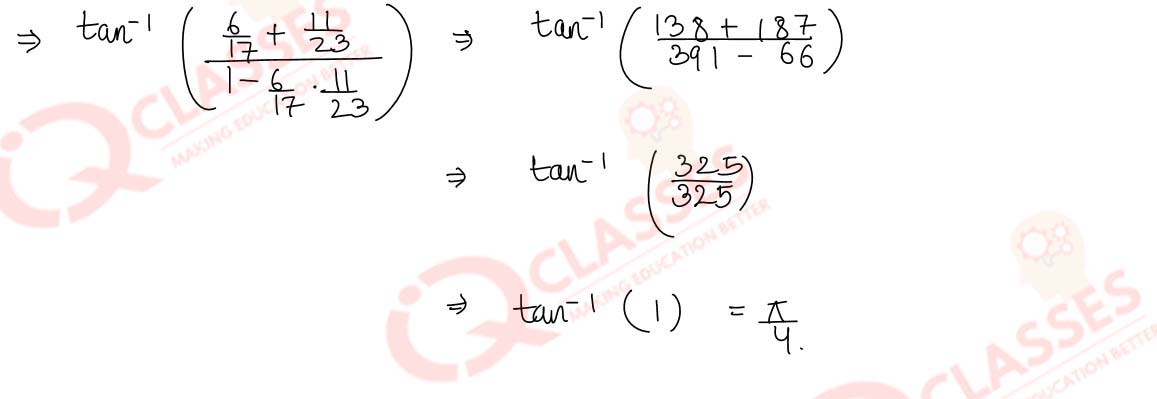 ⇒ tan⁻¹ ( (6/17 + 11/23) / (1 - 6/17 · 11/23) ) ⇒ tan⁻¹ ( (138 + 187) / (391 - 66) )
⇒ tan⁻¹ ( 325/325 )
⇒ tan⁻¹ ( 1 ) = π/4.
CLASSES
MAKING EDUCATION BETTER
CLASSES
MAKING EDUCATION BETTER
CLASSES
EDUCATION BETTER